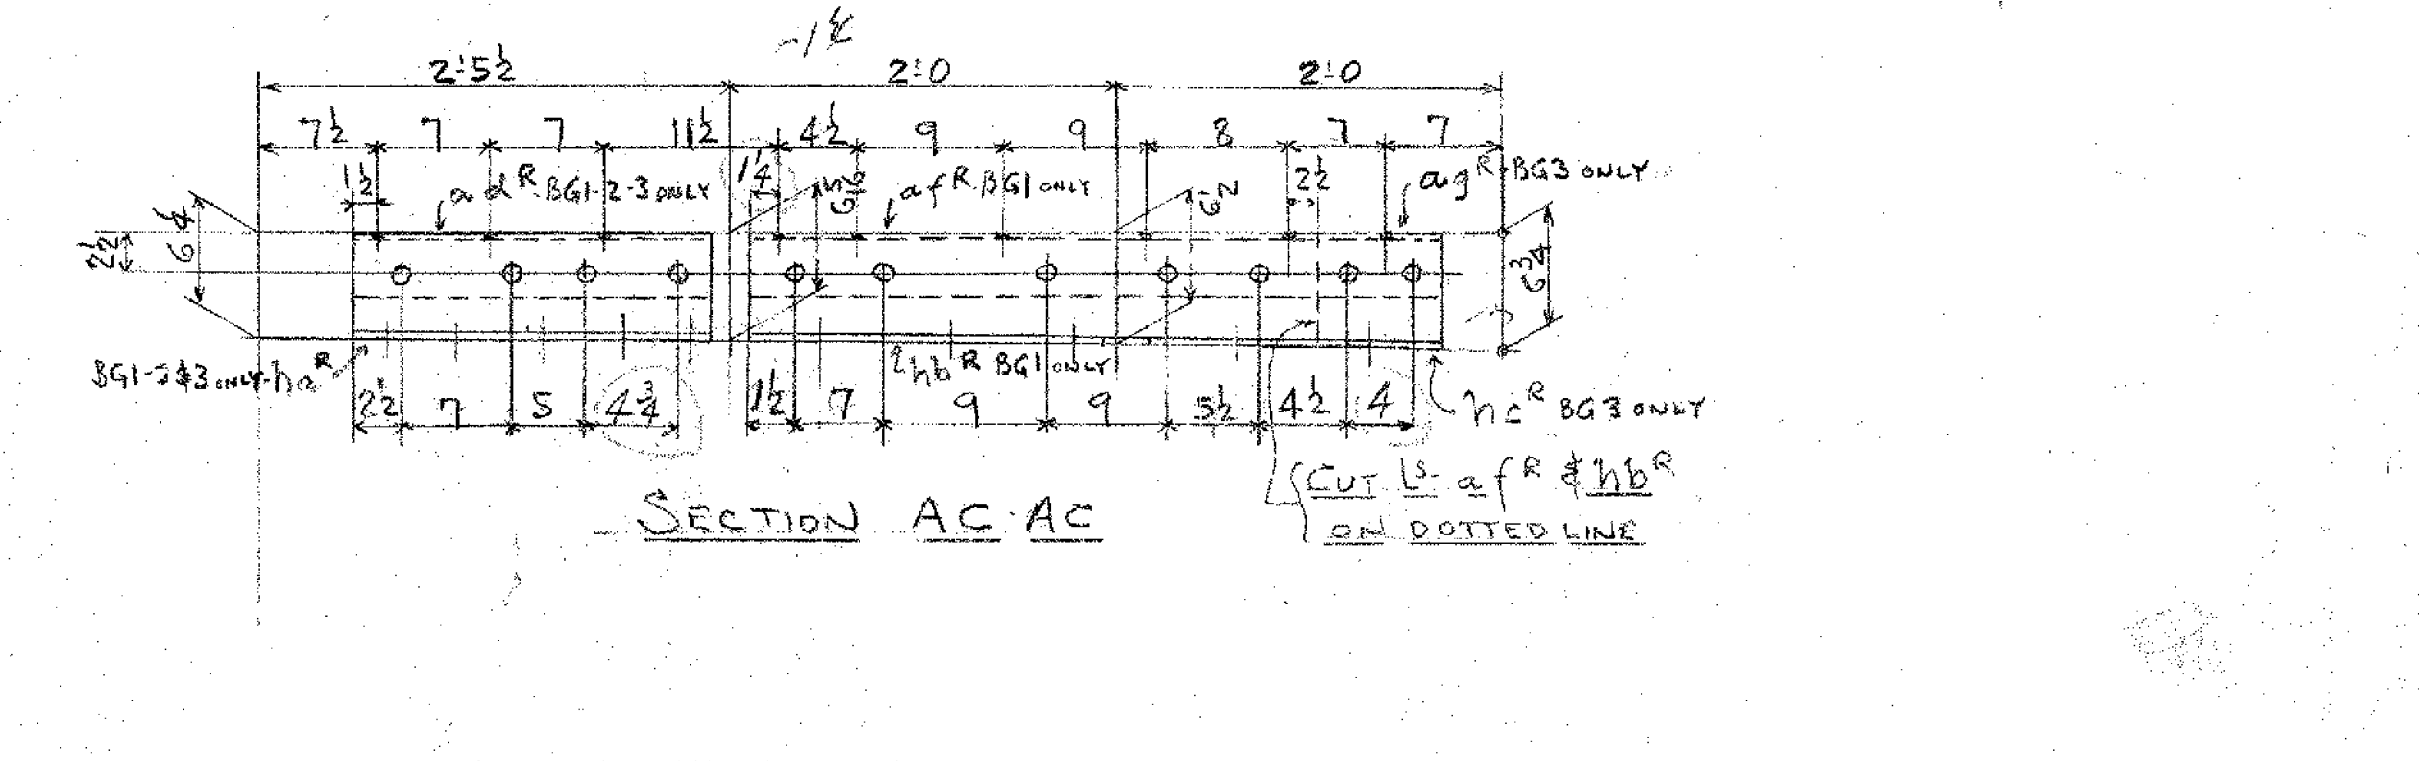 2'-5½ 2'-0 2'-0
7½ 7 7 11½ 4½ 9 9 8 7 7
1½ adᴿ BG1-2-3 ONLY 1¼ 6½ afᴿ BG1 ONLY 2½ agᴿ BG3 ONLY
2½ 6¼ 6¾
BG1-2&3 ONLY haᴿ hbᴿ BG1 ONLY
2½ 7 5 4¾ 1½ 7 9 9 5½ 4½ 4 hcᴿ BG3 ONLY
CUT Ls afᴿ & hbᴿ
ON DOTTED LINE
SECTION AC-AC